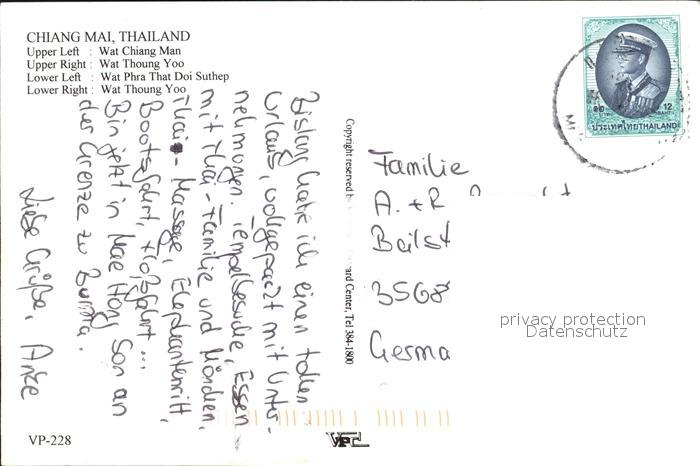 CHIANG MAI, THAILAND
Upper Left : Wat Chiang Man
Upper Right : Wat Thoung Yoo
Lower Left : Wat Phra That Doi Suthep
Lower Right : Wat Thoung Yoo
Bislang habe ich einen tollen
Urlaub, vollgepackt mit Unter-
nehmungen. Tempelbesuche, Essen
mit Thai-Familie und Mönchen,
Thai-Massage, Elephantenritt,
Bootsfahrt, Floßfahrt...
Bin jetzt in Mae Hong Son an
der Grenze zu Burma.
Liebe Grüße, Anke
Copyright reserved b
ard Center, Tel 384-1800
Familie
A. + R
Beilst
35687
Germa
privacy protection
Datenschutz
๑๒ 12
บาท BAHT
ประเทศไทย THAILAND
VP-228